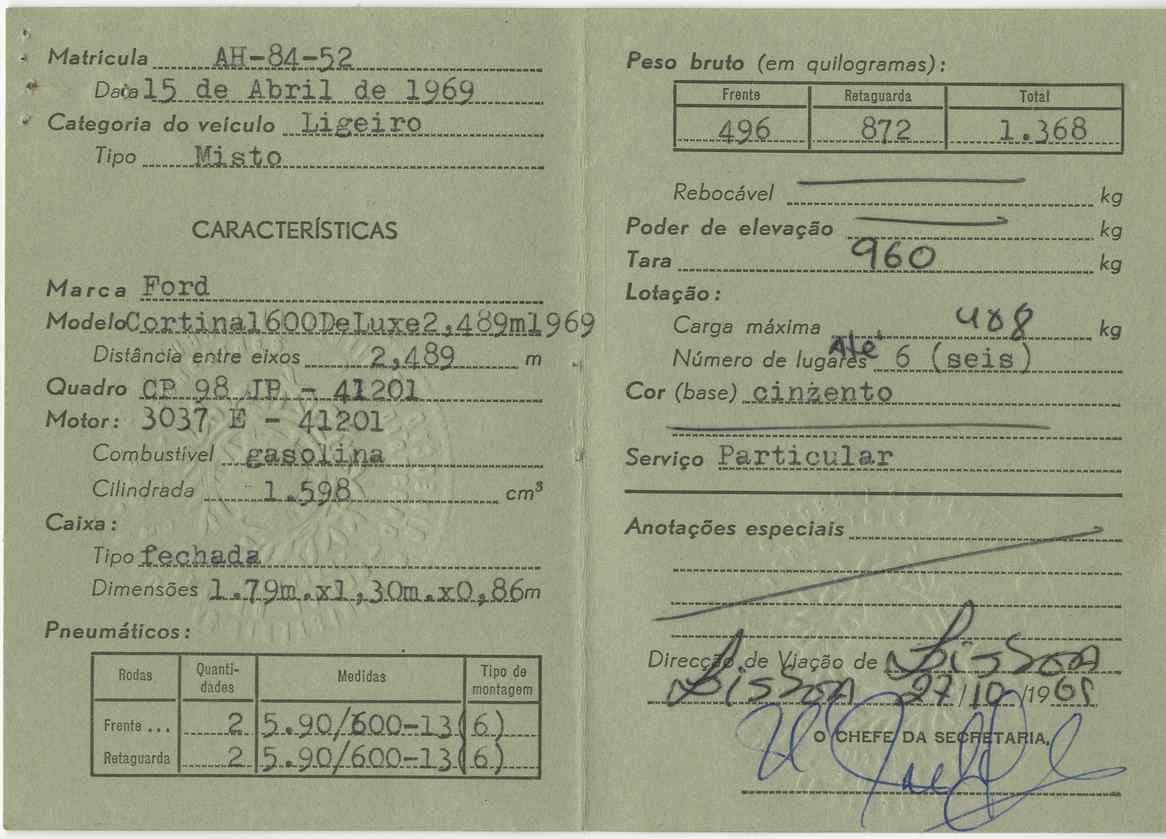 Matrícula AH-84-52
Data 15 de Abril de 1969
Categoria do veículo Ligeiro
Tipo Misto
CARACTERÍSTICAS
Marca Ford
Modelo Cortina1600DeLuxe2,489m1969
Distância entre eixos 2,489 m
Quadro CP 98 JP - 41201
Motor: 3037 E - 41201
Combustível gasolina
Cilindrada 1.598 cm³
Caixa:
Tipo fechada
Dimensões 1.79m.x1,30m.x0,86m
Pneumáticos:
Rodas Quanti-dades Medidas Tipo de montagem
Frente ... 2 5.90/600-13(6)
Retaguarda 2 5.90/600-13(6)
Peso bruto (em quilogramas):
Frente Retaguarda Total
496 872 1.368
Rebocável kg
Poder de elevação kg
Tara 960 kg
Lotação:
Carga máxima 408 kg
Número de lugares Até 6 (seis)
Cor (base) cinzento
Serviço Particular
Anotações especiais
Direcção de Viação de Lisboa
Lisboa 27/10/19
O CHEFE DA SECRETARIA,